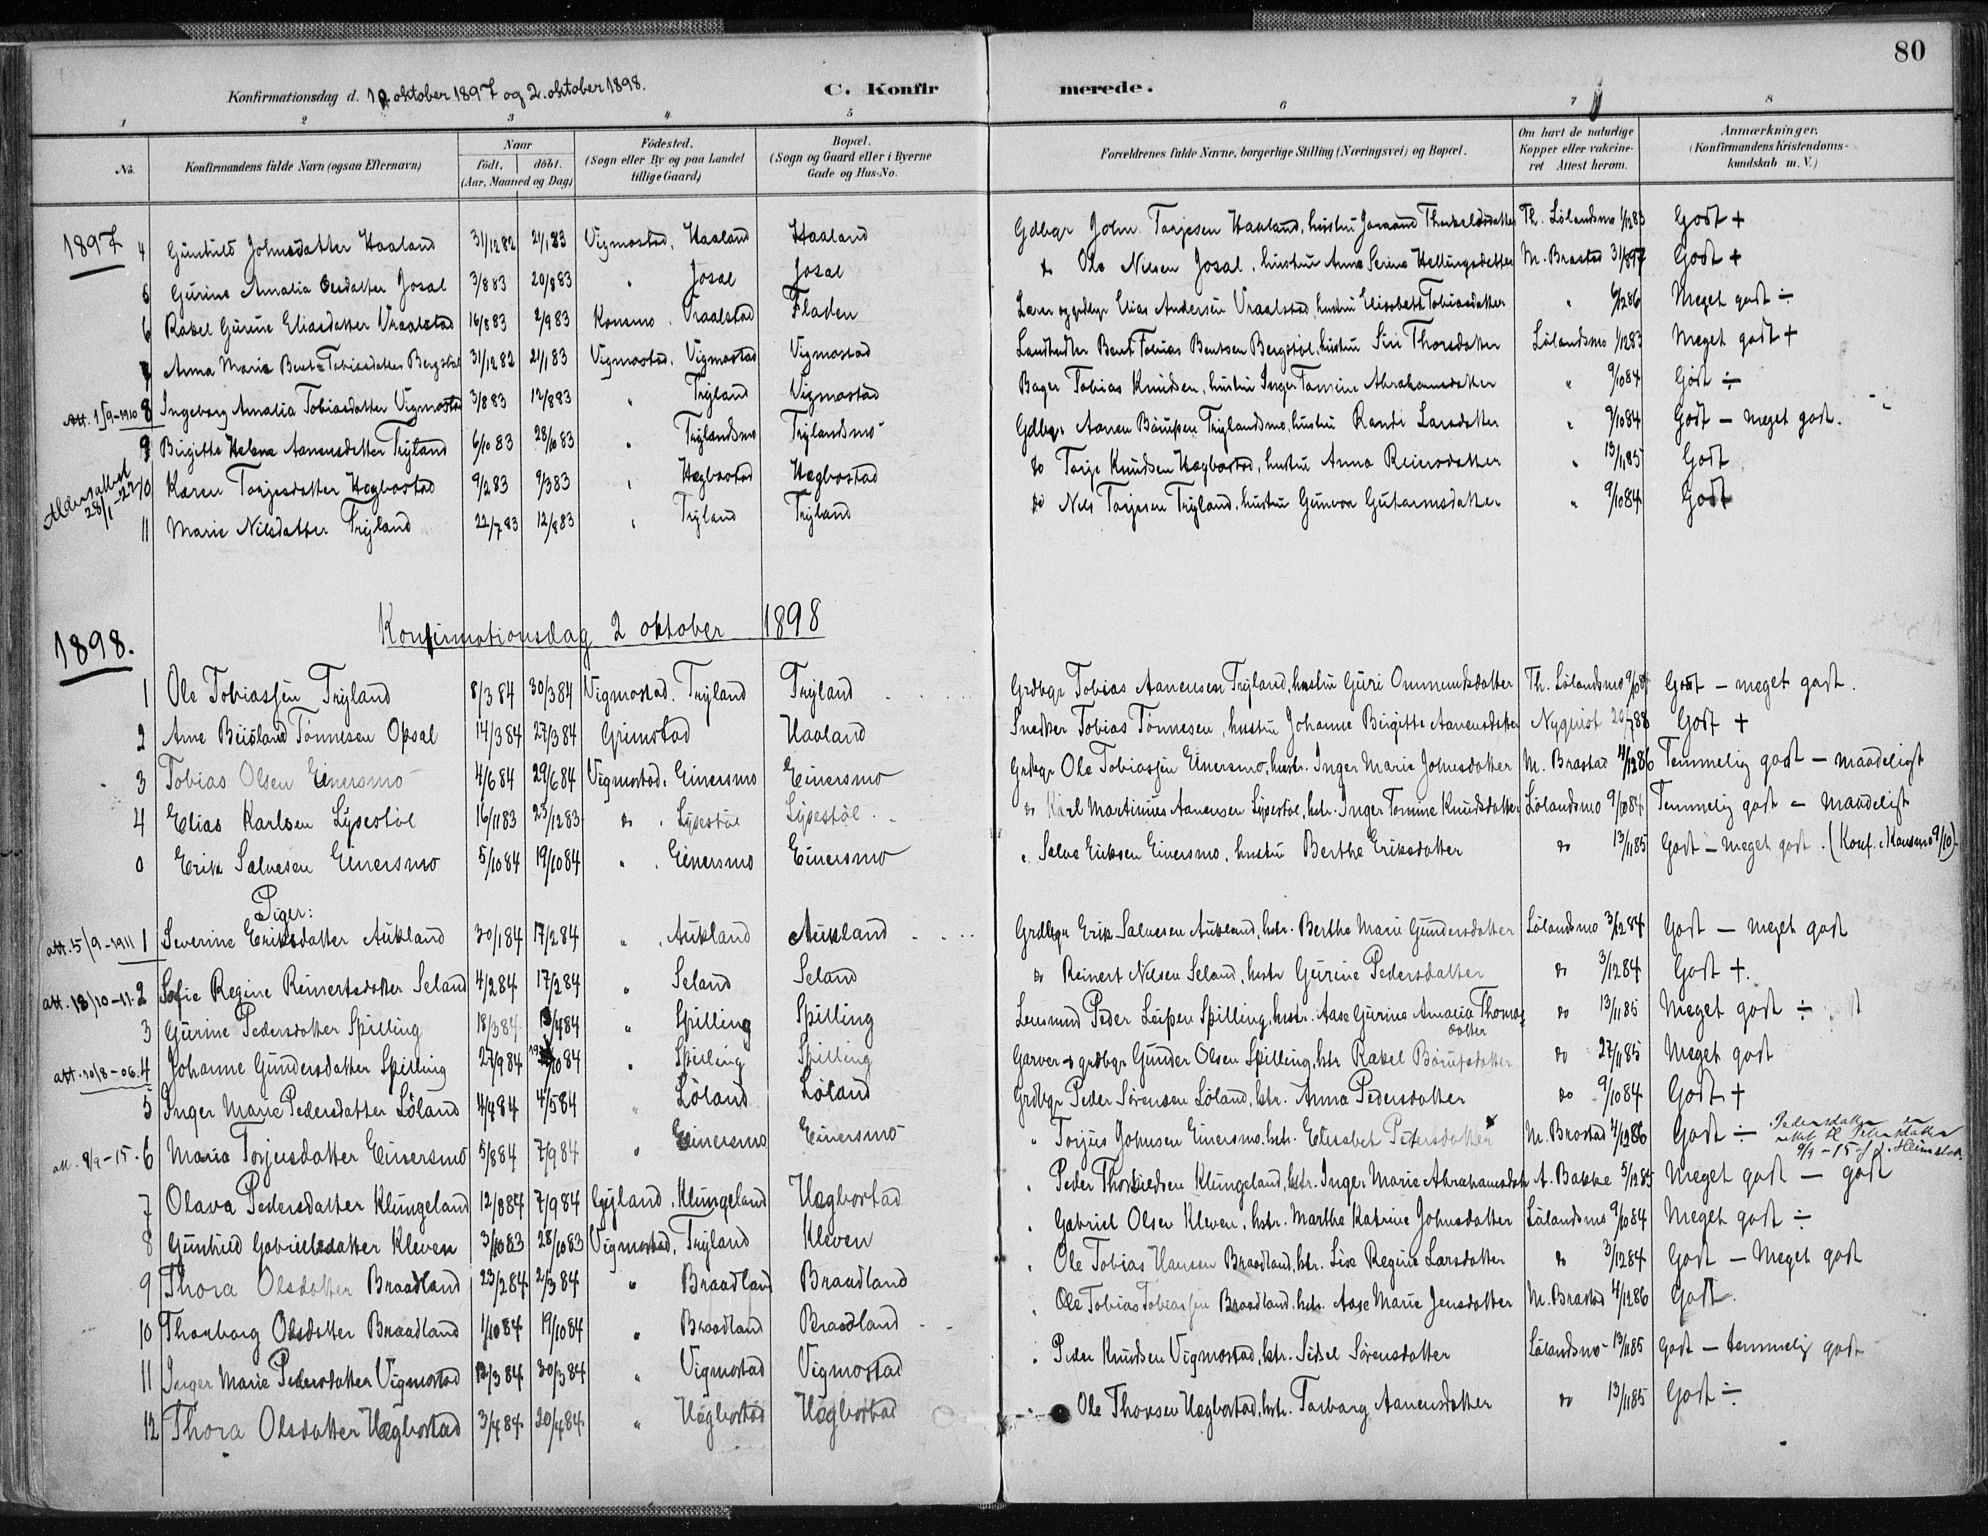 80
Konfirmationsdag d. 10. oktober 1897 og 2. oktober 1898.
C. Konfirmerede.
1 2 3 4 5 6 7 8
No.
Konfirmandens fulde Navn (ogsaa Efternavn)
Naar
födt. döbt.
(Aar, Maaned og Dag)
Födested.
(Sogn eller By og paa Landet
tillige Gaard)
Bopæl.
(Sogn og Gaard eller i Byerne
Gade og Hus-No.
Forældrenes fulde Navne, borgerlige Stilling (Næringsvei) og Bopæl.
Om havt de naturlige
Kopper eller vakcine-
ret Attest herom.
Anmærkninger.
(Konfirmandens Kristendoms-
kundskab m. V.)
1897
4 Gunhild Johnsdatter Haaland 31/12 82 21/1 83 Vigmostad. Haaland Haaland Gdbgr John Tarjesen Haaland, hustru Th. Lölandsmo 1/12 83 Godt +
5 Gurine Amalia Olesdatter Josal 3/8 83 20/8 83 " Josal Josal do Ole Nilsen Josal, hustru Anne Serine Hellingsdatter M. Brastad 31/8 97 Godt +
6 Rakel Gurine Eliasdatter Vraalstad 16/8 83 2/9 83 Konsmo. Vraalstad Fladen Lærer og grdbgr Elias Andersen Vraalstad, hustru Elisabeth Tobiasdatter " 6/12 86 Meget godt ÷
7 Anna Marie Bent-Tobiasdatter Bergstøl 31/12 82 21/1 83 Vigmostad. Vigmostad Vigmostad Landhandler Bent Tobias Bentsen Bergstöl, hustru Siri Thorsdatter Lölandsmo 1/12 83 Meget godt +
Att. 15/9-1910 8 Ingeborg Amalia Tobiasdatter Vigmostad 3/8 83 12/8 83 " Tryland Vigmostad Bager Tobias Knudsen, hustru Inger Tomine Abrahamsdatter " 9/10 84 Godt ÷
9 Birgitte Helene Aanensdatter Tryland 6/10 83 28/10 83 " Trylandsmo Trylandsmo Gdbgr Aanen Trylandsmo, hustru Randi Larsdatter " 9/10 84 Godt - meget godt.
Aldersattest 28/1-22 10 Karen Torjesdatter Hægbostad 9/2 83 9/3 83 " Hægbostad Hægbostad do Torje Knudsen Hægbostad, hustru Anna Reiersdatter " 13/11 85 Godt
11 Marie Nilsdatter Tryland 22/7 83 12/8 83 " Tryland Tryland do Nils Torjesen Tryland, hustru Gunvor Gutormsdatter " 9/10 84 Godt
1898. Konfirmationsdag 2 oktober 1898
1 Ole Tobiassen Tryland 8/3 84 30/3 84 Vigmostad. Tryland Tryland Grdbgr Tobias Aanensen Tryland, hustru Guri Ommundsdatter Th. Lölandsmo Godt - meget godt.
2 Arne Tönnesen Opsal 14/3 84 27/3 84 Grimstad Haaland Snedker Tobias Tönnesen, hustru Johanne Birgitte Aanensdatter Nyquist 20/7 88 Godt +
3 Tobias Olsen Einersmo 4/6 84 29/6 84 Vigmostad. Einersmo Einersmo Grdbgr Ole Tobiassen Einersmo, hustr. Inger Marie Johnsdatter M. Brastad 4/12 86 Temmelig godt - maadeligt
4 Elias Karlsen Lysestöl 16/11 83 23/12 83 do. Lysestöl Lysestöl do Karl Martinius Aanensen Lysestöl, hstr. Inger Tomine Knudsdatter Lölandsmo 9/10 84 Temmelig godt - maadeligt
0 Erik Salvesen Einersmo 5/10 84 19/10 84 " Einersmo Einersmo " Salve Eriksen Einersmo, hustru Berthe Eriksdatter do 13/11 85 Godt - meget godt. (Konf. i Konsmo 9/10)
Piger:
att. 15/9-1911 1 Severine Eriksdatter Aukland 30/1 84 17/2 84 " Aukland Aukland Grdbgr Erik Salvesen Aukland, hstr. Berthe Marie Gundersdatter Lölandsmo 3/12 84 Godt - meget godt
att. 18/10-11. 2 Sofie Regine Reinertsdatter Seland 4/2 84 17/2 84 " Seland Seland do Reinert Nilsen Seland, hstr Gurine Pedersdatter do 3/12 84 Godt +.
3 Gurine Pedersdatter Spilling 18/3 84 /4 84 " Spilling Spilling Lensmand Peder Spilling, hustr. Aase Gurine Amalia Thomas-
datter do 13/11 85 Meget godt ÷
att. 10/8-06. 4 Johanne Gundersdatter Spilling 27/9 84 /10 84 " Spilling Spilling Garver og grdbgr Gunder Olsen Spilling, hstr Rakel do 27/11 85 Meget godt
5 Inger Marie Pedersdatter Löland 4/4 84 4/5 84 " Löland Löland Grdbgr Peder Sörensen Löland, hstr. Anna Pedersdatter do 9/10 84 Godt +
att. 9/9-15. 6 Maria Torjusdatter Einersmo 5/8 84 7/9 84 " Einersmo Einersmo " Torjus Johnsen Einersmo, hstr. Elisabet Petersdatter M. Brastad 4/12 86 Godt ÷ Pedersdatter 9/9-15
7 Olava Pedersdatter Klungeland 12/8 84 7/9 84 Lyland. Klungeland Hægbostad " Peder Klungeland, hstr. Inger Marie Abrahamsdatr A. Bakke 5/12 85 Meget godt - godt
8 Gunhild Gabrielsdatter Kleven 3/10 83 28/10 83 Vigmostad. Tryland Kleven " Gabriel Olsen Kleven, hstr. Marthe Katrine Johnsdatter Lölandsmo 9/10 84 Meget godt ÷
9 Thora Olsdatter Braadland 23/2 84 2/3 84 " Braadland Braadland " Ole Tobias Hansen Braadland, hstr. Lise Regine Larsdatter do 3/12 84 Godt - Meget godt
10 Thorborg Olsdatter Braadland 1/10 84 19/10 84 " Braadland Braadland " Ole Tobias Tobiassen Braadland, hstr. Aase Marie Jensdatter M. Brastad 4/12 86 Godt.
11 Inger Marie Pedersdatter Vigmostad 12/3 84 30/3 84 " Vigmostad Vigmostad " Peder Knudsen Vigmostad, hstr. Sidsel Sörensdatter Lölandsmo 13/11 85 Godt - temmelig godt
12 Thora Olsdatter Hægbostad 3/4 84 20/4 84 " Hægbostad Hægbostad " Ole Thorsen Hægbostad, hstr. Torborg Aanensdatter do 13/11 85 Godt ÷